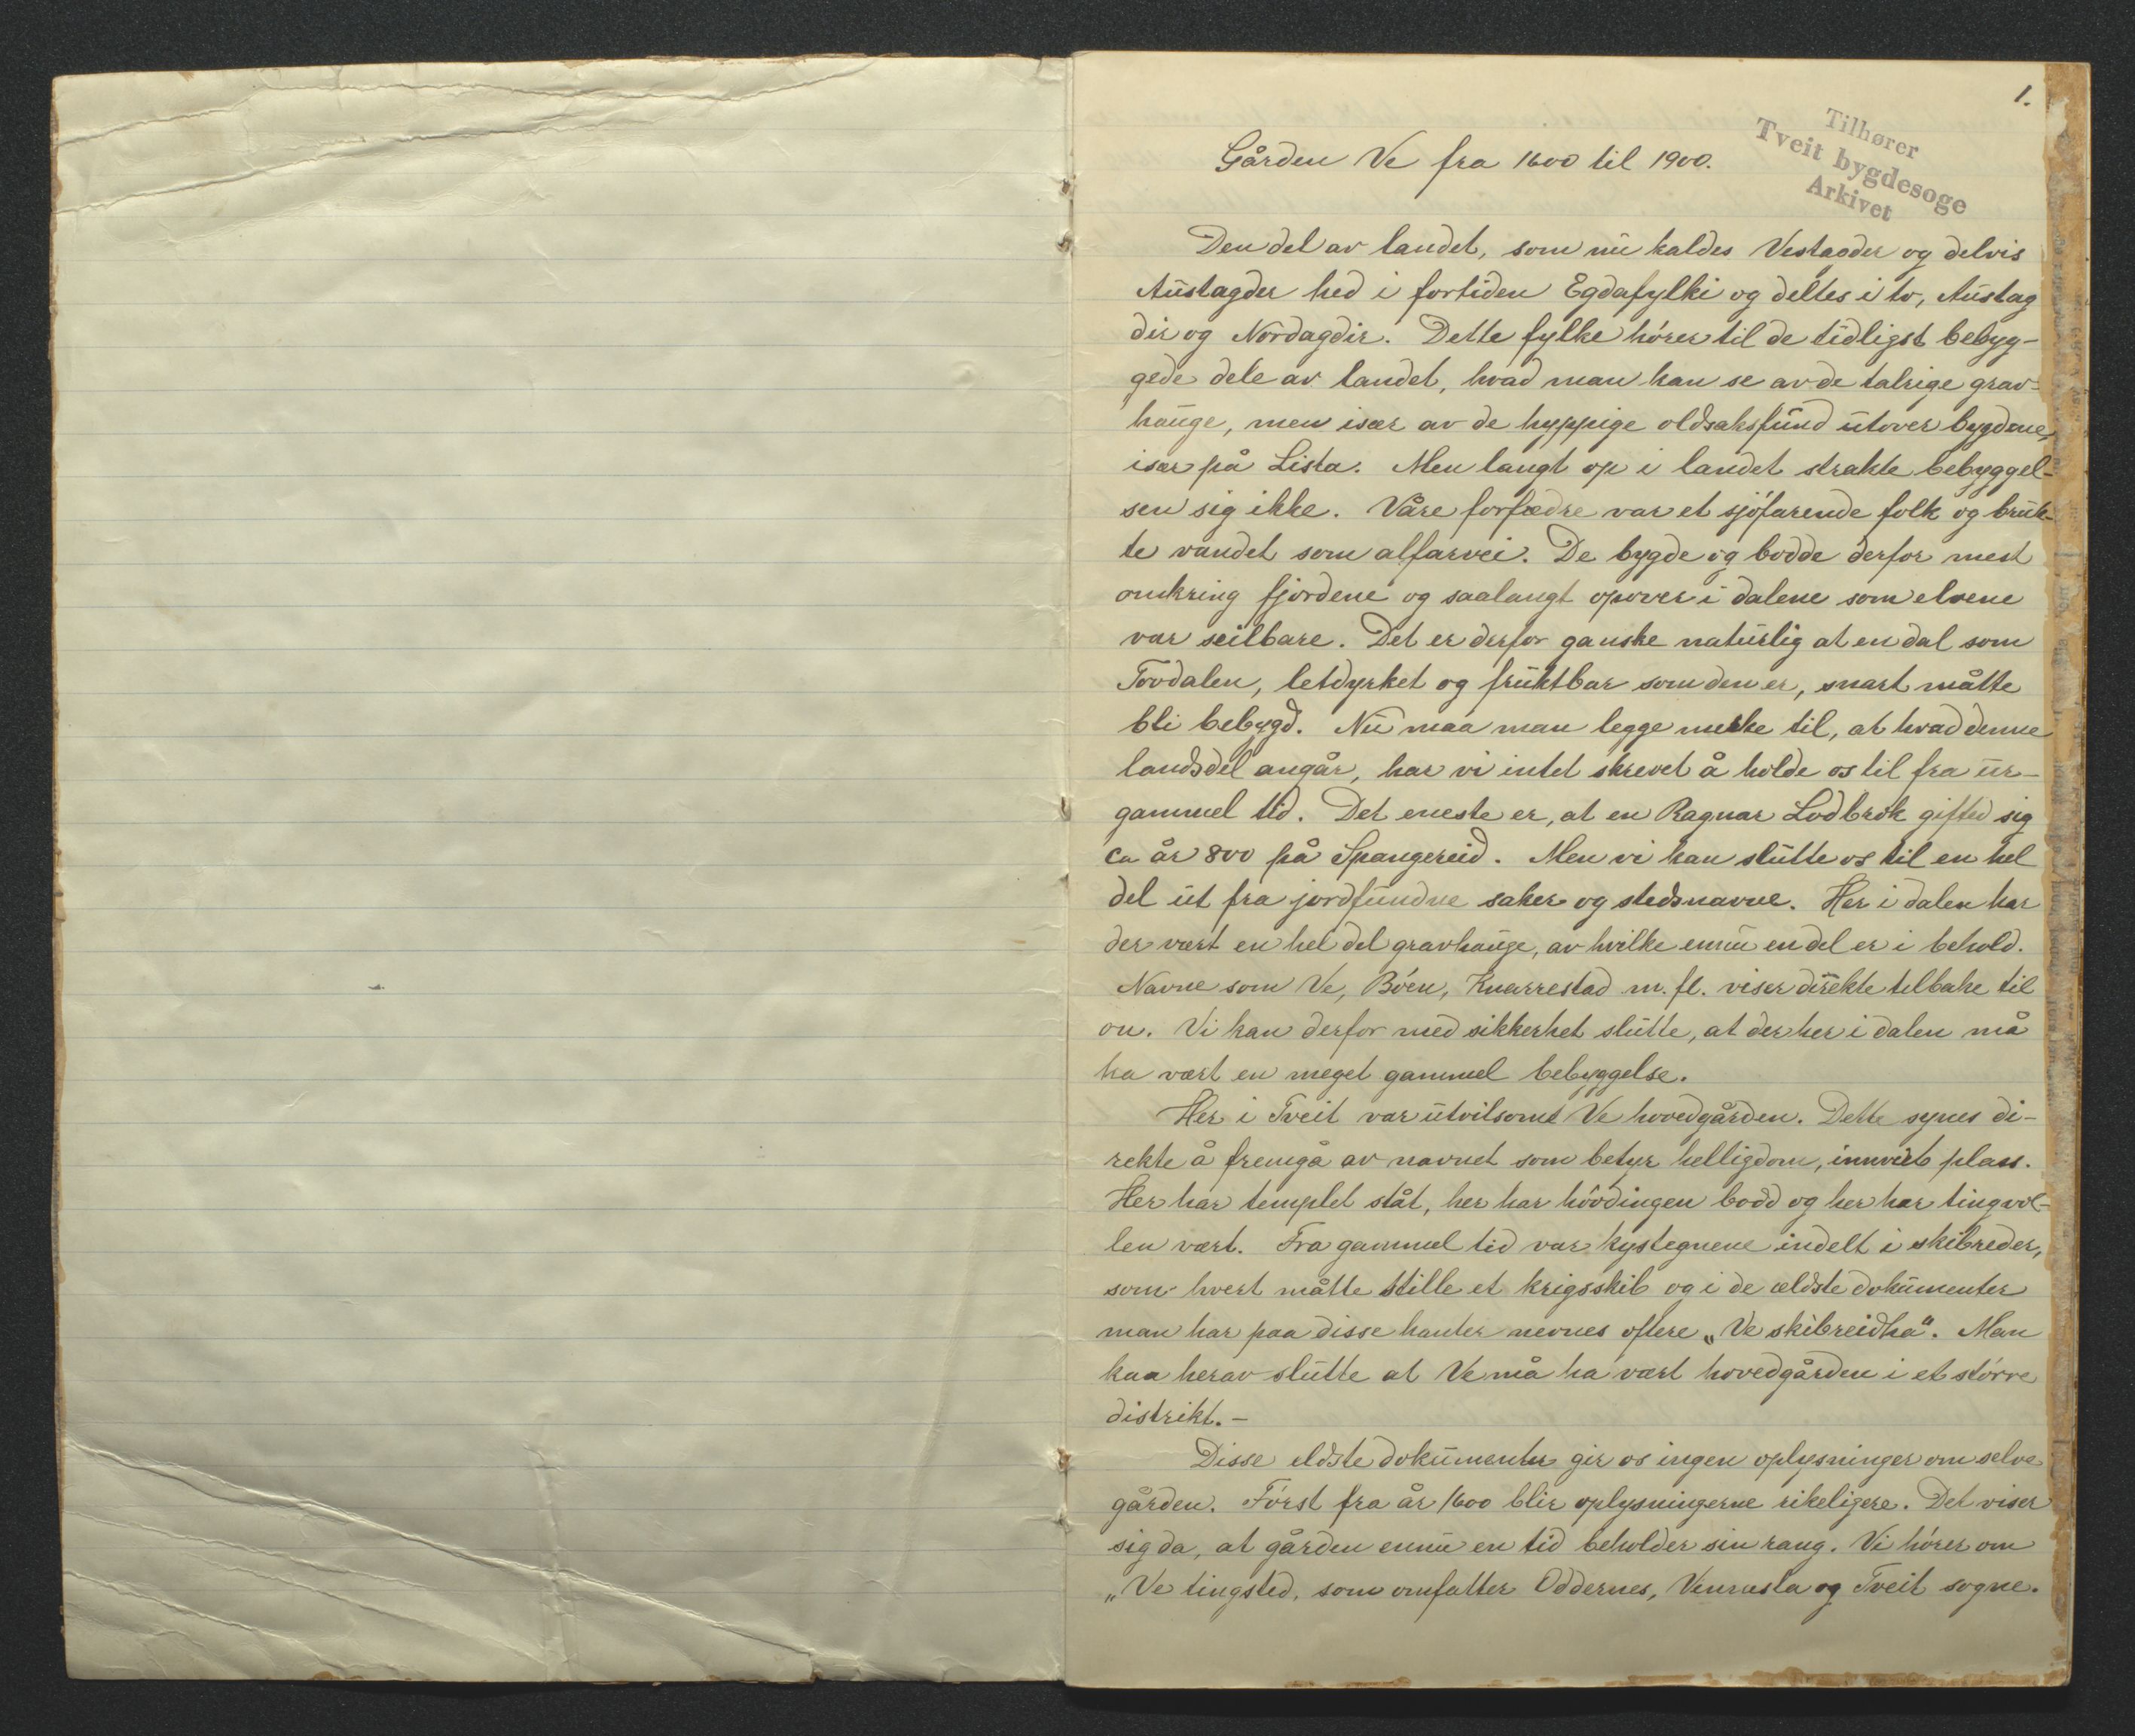 1.
Tilhører
Tveit bygdesoge
Arkivet
Gården Ve fra 1600 til 1900.
Den del av landet, som nu kaldes Vestagder og delvis
Austagder hed i fortiden Egdafylki og deltes i to, Austag
dir og Nordagdir. Dette fylke hører til de tidligst bebyg-
gede dele av landet, hvad man kan se av de talrige grav-
hauge, men især av de hyppige oldsaksfund utover bygdene,
især på Lista. Men langt op i landet strakte bebyggel-
sen sig ikke. Våre forfædre var et sjøfarende folk og bruk-
te vandet som alfarvei. De bygde og bodde derfor mest
omkring fjordene og saalangt opover i dalene som elvene
var seilbare. Det er derfor ganske naturlig at en dal som
Tovdalen, letdyrket og fruktbar som den er, snart måtte
bli bebygd. Nu maa man legge merke til, at hvad denne
landsdel angår, har vi intet skrevet å holde os til fra ur-
gammel tid. Det eneste er, at en Ragnar Lodbrok gifted sig
ca år 800 på Spangereid. Men vi kan slutte os til en hel
del ut fra jordfundne saker og stedsnavne. Her i dalen har
der vært en hel del gravhauge, av hvilke ennu en del er i behold.
Navne som Ve, Bøen, Knarrestad m. fl. viser direkte tilbake til
on. Vi kan derfor med sikkerhet slutte, at der her i dalen må
ha vært en meget gammel bebyggelse.
Her i Tveit var utvilsomt Ve hovedgården. Dette synes di-
rekte å fremgå av navnet som betyr helligdom, innviet plass.
Her har templet ståt, her har høvdingen bodd og her har tingvol-
len vært. Fra gammel tid var kystegnene indelt i skibreder,
som hvert måtte stille et krigsskib og i de ældste dokumenter
man har paa disse kanter nevnes oftere „Ve skibreidha“. Man
kan herav slutte at Ve må ha vært hovedgården i et større
distrikt. –
Disse eldste dokumenter gir os ingen oplysninger om selve
gården. Først fra år 1600 blir oplysningerne rikeligere. Det viser
sig da, at gården ennu en tid beholder sin rang. Vi hører om
„Ve tingsted, som omfatter Oddernes, Vennesla og Tveit sogne.